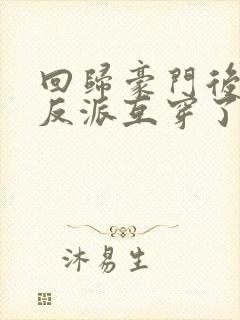 回歸豪門後
反派互穿了
沐易生